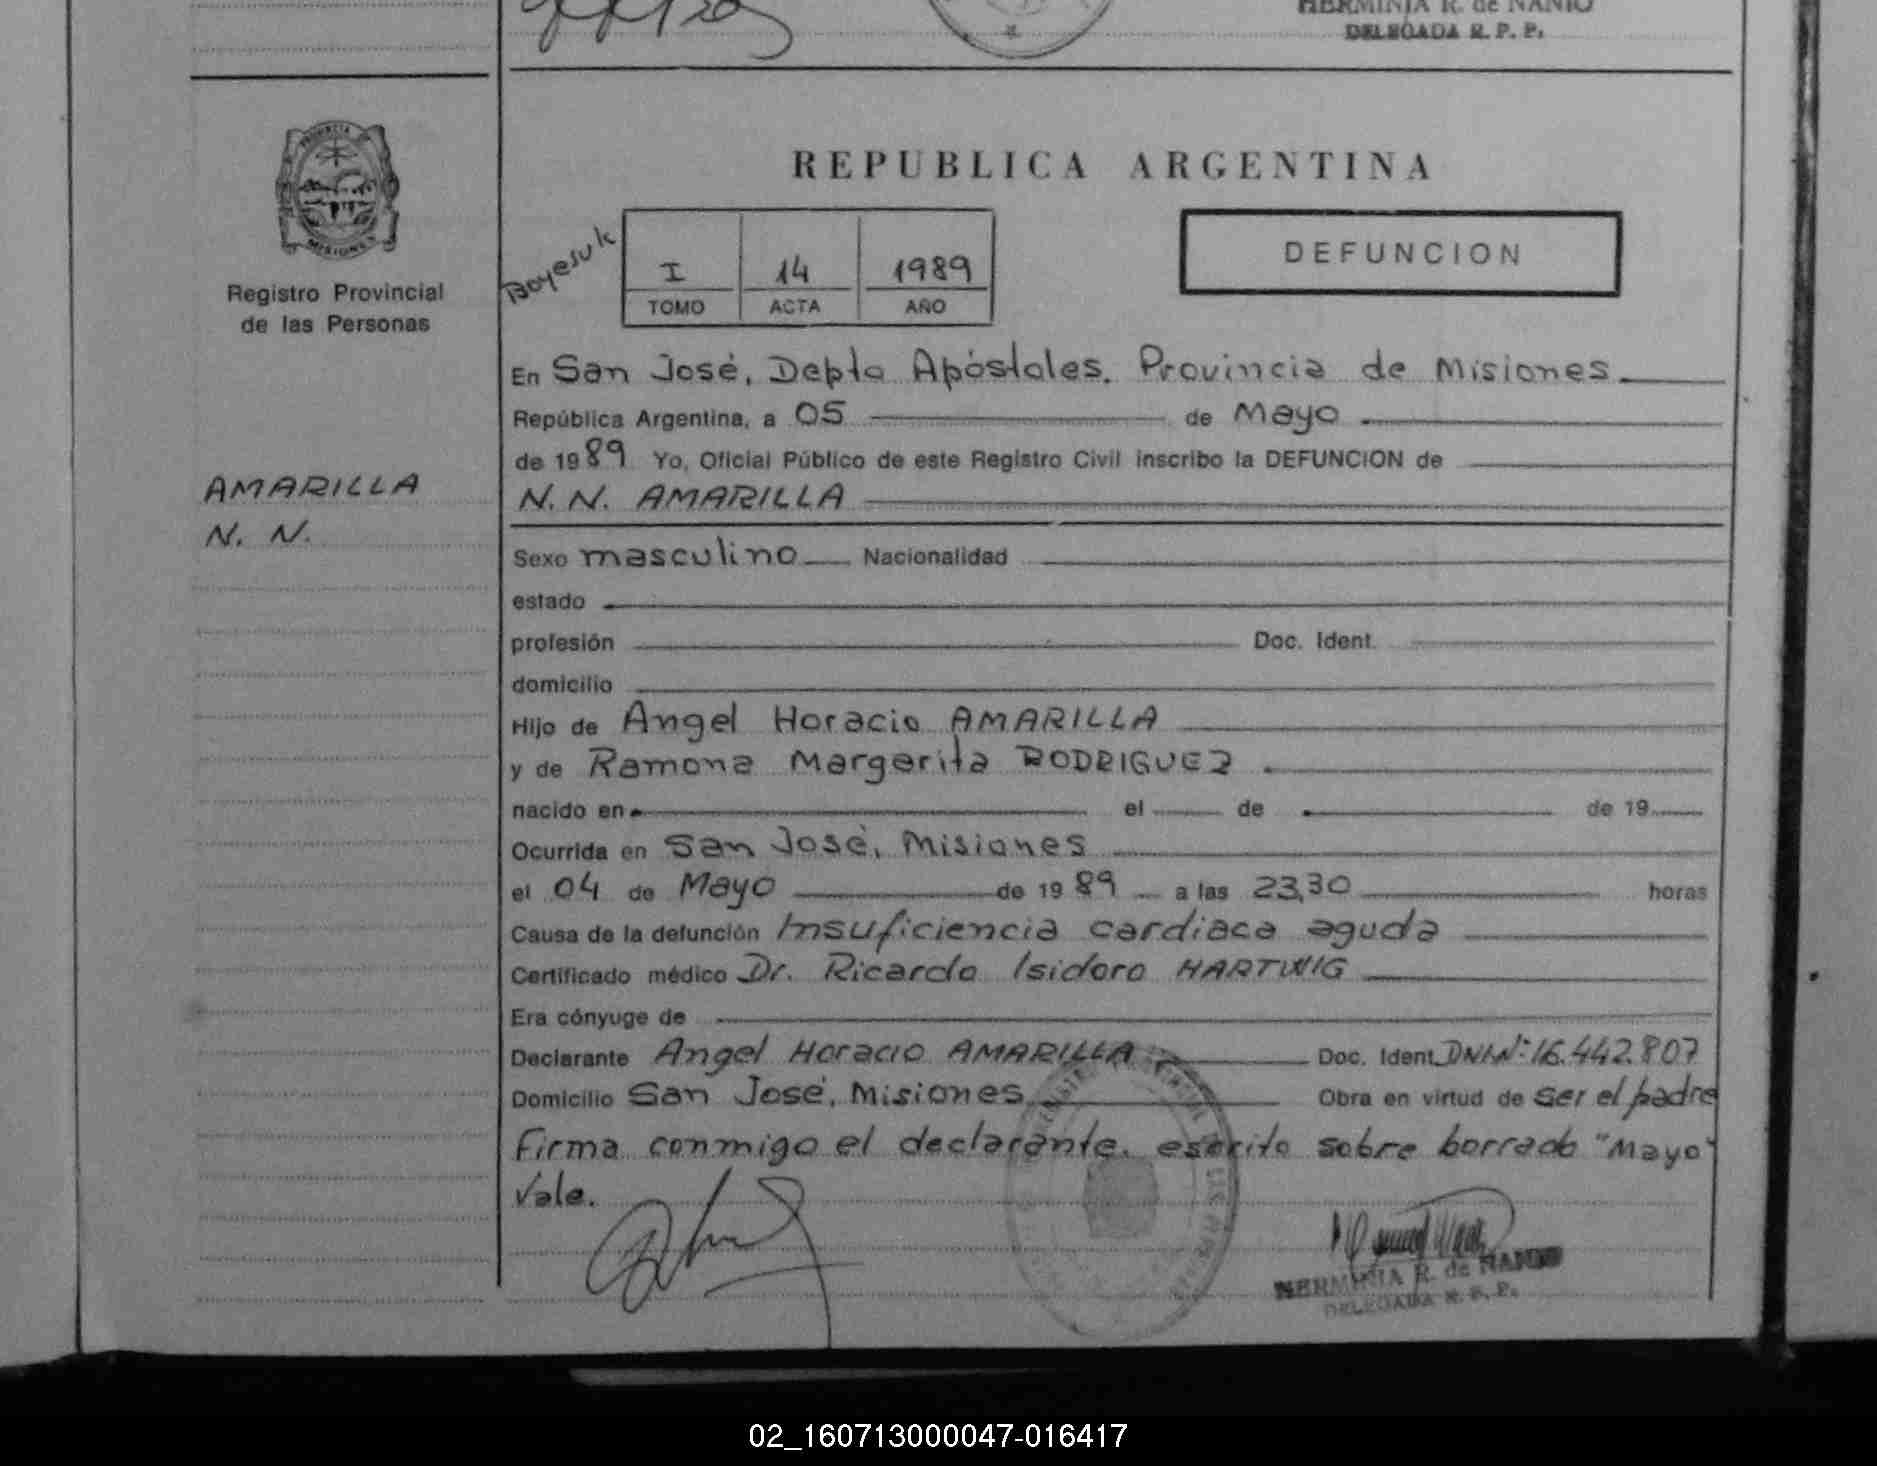 HERMINIA R. de NANIO
DELEGADA R. P. P.
PROVINCIA DE
MISIONES
Registro Provincial
de las Personas
AMARILLA
N. N.
REPUBLICA ARGENTINA
Boyesuk
I 14 1989
TOMO ACTA AÑO
DEFUNCION
En San José, Depto Apóstoles. Provincia de Misiones
República Argentina, a 05 de Mayo
de 1989 Yo, Oficial Público de este Registro Civil inscribo la DEFUNCION de
N. N. AMARILLA
Sexo masculino Nacionalidad
estado
profesión Doc. Ident.
domicilio
Hijo de Angel Horacio AMARILLA
y de Ramona Margarita RODRIGUEZ
nacido en el de de 19
Ocurrida en San José, Misiones
el 04 de Mayo de 1989 a las 23,30 horas
Causa de la defunción Insuficiencia cardiaca aguda
Certificado médico Dr. Ricardo Isidoro HARTWIG
Era cónyuge de
Declarante Angel Horacio AMARILLA Doc. Ident. DNI Nº: 16.442.807
Domicilio San José, Misiones Obra en virtud de ser el padre
Firma conmigo el declarante. escrito sobre borrado "Mayo"
Vale.
HERMINIA R. de NANIO
DELEGADA R. P. P.
02_160713000047-016417